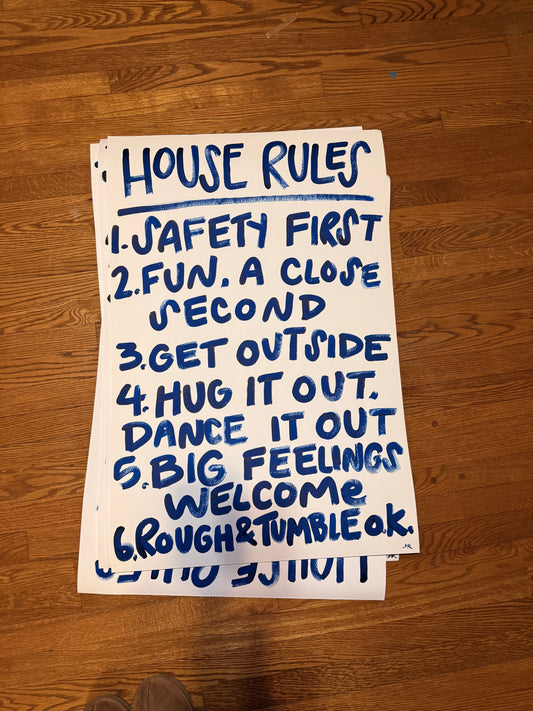 HOUSE RULES
1. SAFETY FIRST
2. FUN, A CLOSE
SECOND
3. GET OUTSIDE
4. HUG IT OUT,
DANCE IT OUT
5. BIG FEELINGS
WELCOMe
6. ROUGH & TUMBLE O.K.
HOUSE RULES